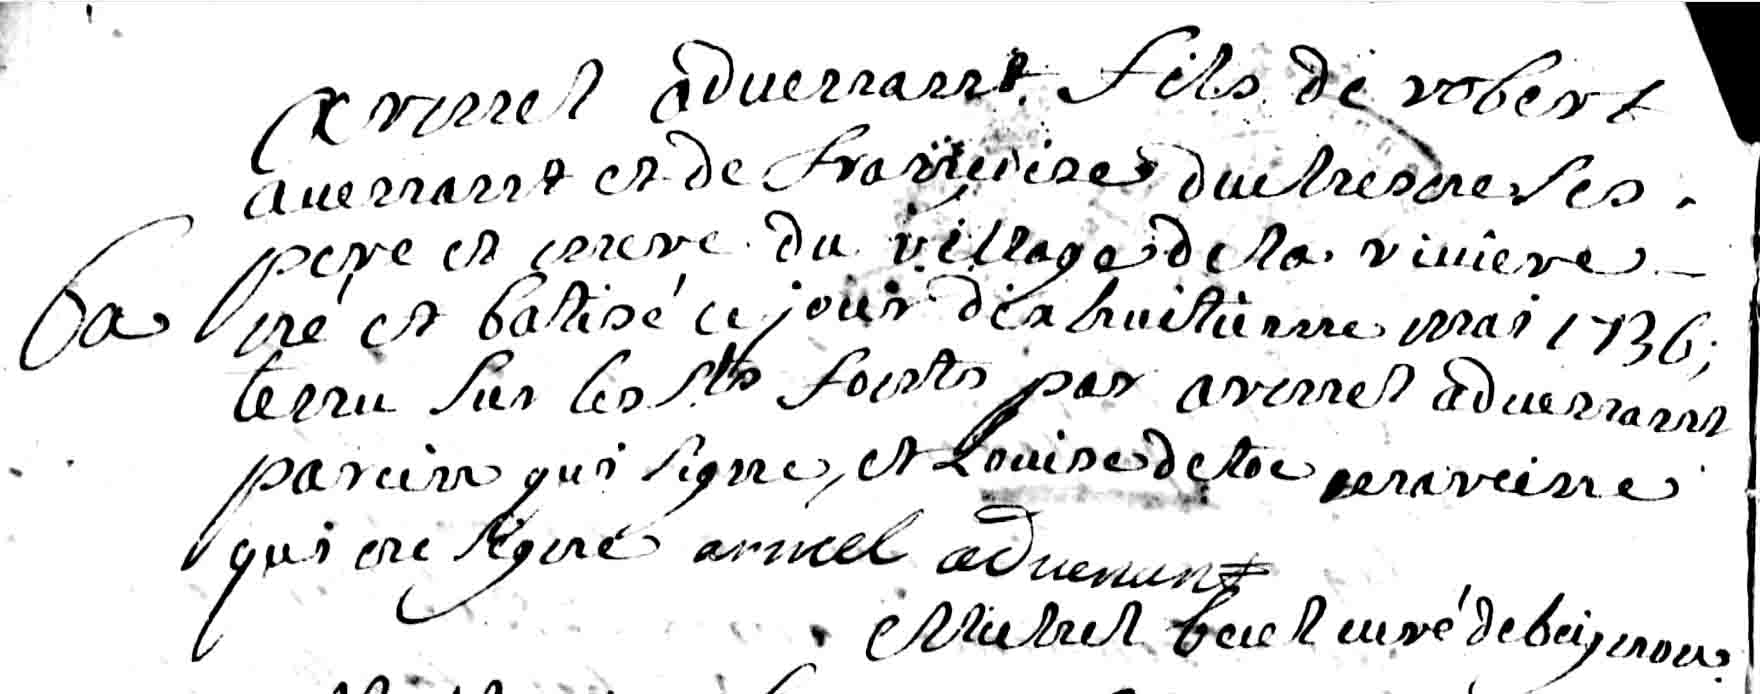 Armel aduenant fils de robert
auenant et de françoise duchesne ses
pere et mere du village de la riuiere
né et batisé ce jour dix huitieme mai 1736;
ba
tenu sur les sts fonts par armel aduenant
parein qui signe, et Louise de mareine
qui ne signe armel aduenant
Michel curé de beignon